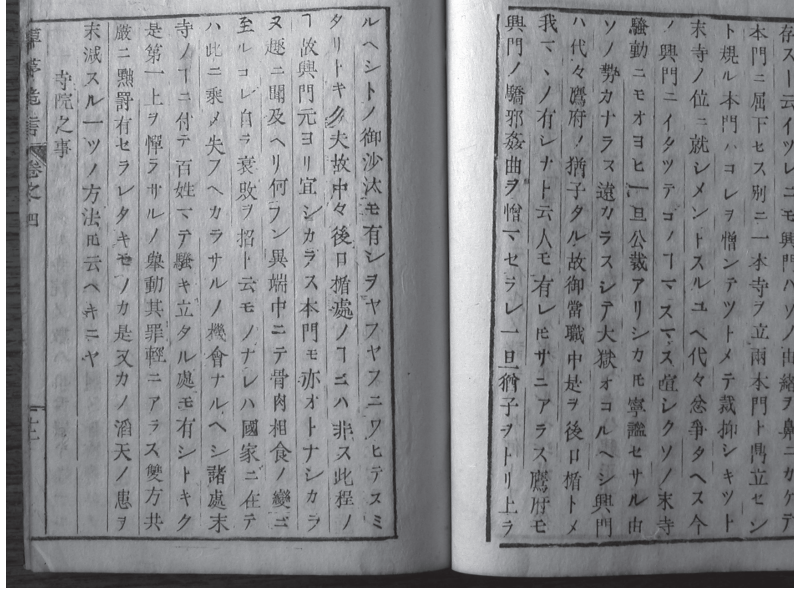 存スヿ云イツレニモ興門ハソノ由緒ヲ鼻ニカケテ
本門ニ屈下セス別ニ一本寺ヲ立兩本門ト鼎立セシ
ト規ル本門ハコレヲ憎ンテツトメテ裁抑シキツト
末寺ノ位ニ就シメントスルユヘ代々忿爭タヘス今
ノ興門ニイタツテコノヿマスマス喧シクソノ末寺
騷動ニモオヨヒ一旦公裁アリシカ𪜈寧謐セサル由
ソノ勢カナラス遠カラスシテ大獄オコルヘシ興門
ハ代々鷹府ノ猶子タル故御當職中是ヲ後ロ楯トメ
我マヽノ有シナト云人モ有レ𪜈サニアラス鷹府モ
興門ノ驕邪姦曲ヲ憎マセラレ一旦猶子ヲトリ上ラ
ルヘシトノ御沙汰モ有シヲヤフヤフニワヒテスミ
タリトキク夫故中々後ロ楯處ノヿニハ非ス此程ノ
ヿ故興門元ヨリ宜シカラス本門モ亦オトナシカラ
ヌ趣ニ聞及ヘリ何フン異端中ニテ骨肉相食ノ變ニ
至ルコレ自ラ衰敗ヲ招ト云モノナレハ國家ニ在テ
ハ此ニ乘メ失フヘカラサルノ機會ナルヘシ諸處末
寺ノヿニ付テ百姓マテ騷キ立タル處モ有シトキク
是第一上ヲ憚ラサルノ擧動其罪輕ニアラス雙方共
嚴ニ黜罸有セラレタキモノカ是又カノ滔天ノ患ヲ
末減スル一ツノ方法𪜈云ヘキニヤ
寺院之事
卷之四